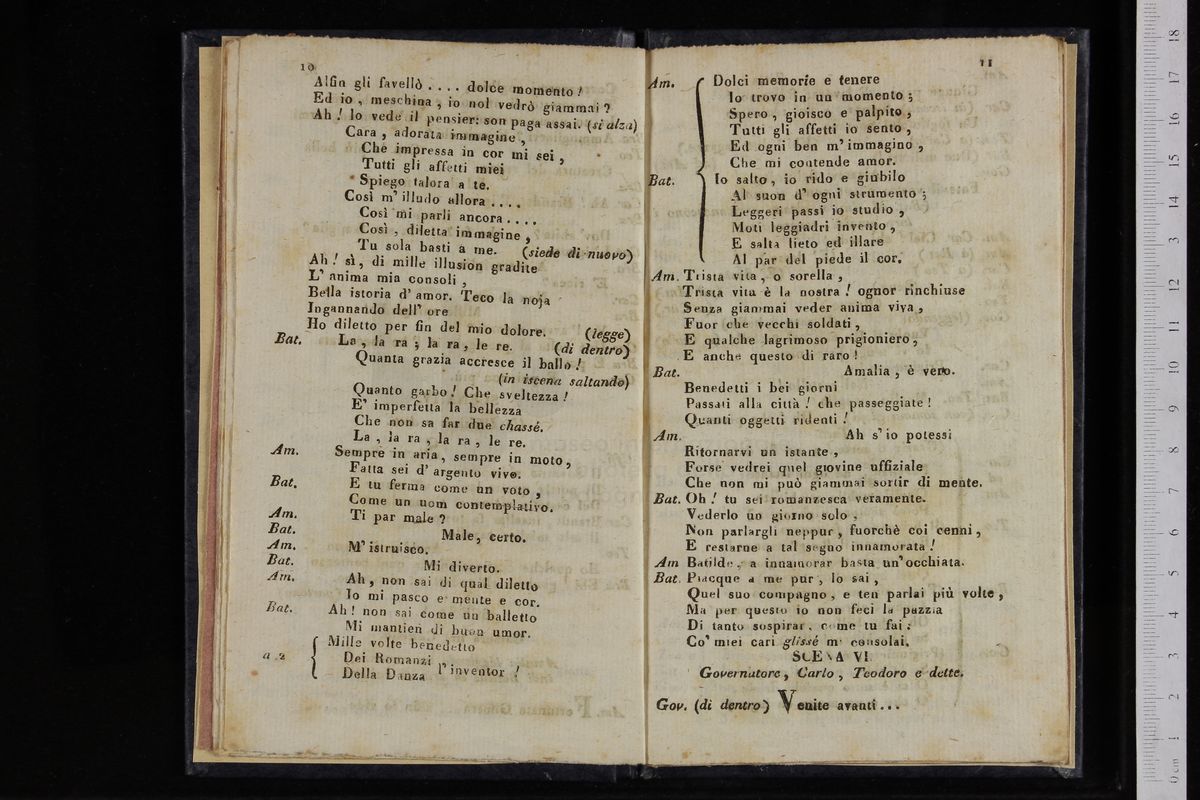 10
Alfin gli favellò . . . . dolce momento !
Ed io , meschina , io nol vedrò giammai ?
Ah ! Io vede il pensier: son paga assai. (si alza)
Cara , adorata immagine ,
Che impressa in cor mi sei ,
Tutti gli affetti miei
Spiego talora a te.
Così m' illudo allora . . . .
Così mi parli ancora . . . .
Così , diletta immagine ,
Tu sola basti a me. (siede di nuovo)
Ah ! sì , di mille illusion gradite
L' anima mia consoli ,
Bella istoria d' amor. Teco la noja
Ingannando dell' ore
Ho diletto per fin del mio dolore. (legge)
Bat. La , la ra ; la ra , le re. (di dentro)
Quanta grazia accresce il ballo !
(in iscena saltando)
Quanto garbo ! Che sveltezza !
E' imperfetta la bellezza
Che non sa far due chassé.
La , la ra , la ra , le re.
Am. Sempre in aria , sempre in moto ,
Fatta sei d' argento vivo.
Bat. E tu ferma come un voto ,
Come un uom contemplativo.
Am. Ti par male ?
Bat. Male, certo.
Am. M' istruisco.
Bat. Mi diverto.
Am. Ah , non sai di qual diletto
Io mi pasco e mente e cor.
Bat. Ah ! non sai come un balletto
Mi mantien di buon umor.
a 2 Mille volte benedetto
Dei Romanzi
l' inventor !
Della Danza
11
Am. Dolci memorie e tenere
Io trovo in un momento ;
Spero , gioisco e palpito ,
Tutti gli affetti io sento ,
Ed ogni ben m' immagino ,
Che mi contende amor.
Bat. Io salto , io rido e giubilo
Al suon d' ogni strumento ;
Leggeri passi io studio ,
Moti leggiadri invento ,
E salta lieto ed illare
Al par del piede il cor.
Am. Trista vita , o sorella ,
Trista vita è la nostra ! ognor rinchiuse
Senza giammai veder anima viva ,
Fuor che vecchi soldati ,
E qualche lagrimoso prigioniero ,
E anche questo di raro !
Bat. Amalia , è vero.
Benedetti i bei giorni
Passati alla città ! che passeggiate !
Quanti oggetti ridenti !
Am. Ah s' io potessi
Ritornarvi un istante ,
Forse vedrei quel giovine uffiziale
Che non mi può giammai sortir di mente.
Bat. Oh ! tu sei romanzesca veramente.
Vederlo un giorno solo ,
Non parlargli neppur , fuorchè coi cenni ,
E restarne a tal segno innamorata !
Am Batilde , a innamorar basta un' occhiata.
Bat. Piacque a me pur , lo sai ,
Quel suo compagno , e ten parlai più volte ,
Ma per questo io non feci la pazzia
Di tanto sospirar , come tu fai :
Co' miei cari glissé m' consolai.
SCENA VI.
Governatore , Carlo , Teodoro e dette.
Gov. (di dentro) Venite avanti . . .
18
17
16
15
14
13
12
11
10
9
8
7
6
5
4
3
2
1
0 cm